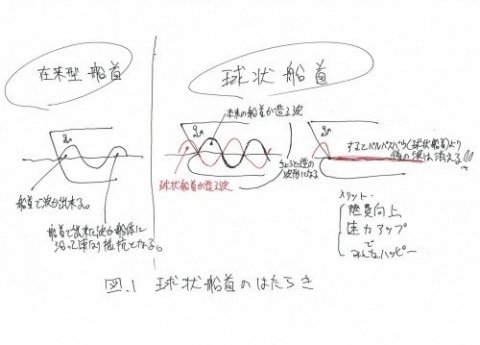 在来型 船首
球状 船首
船首で波が出来る。
船首で出来た波が船体に
沿って連なり抵抗となる。
本来の船首が造る波
球状船首が造る波
ちょうど逆の
波形になる
するとバルバスバウ(球状船首)より
後の波は消える!!!
メリット・
燃費向上
速力アップ
で
みんなハッピー
図.1 球状船首のはたらき